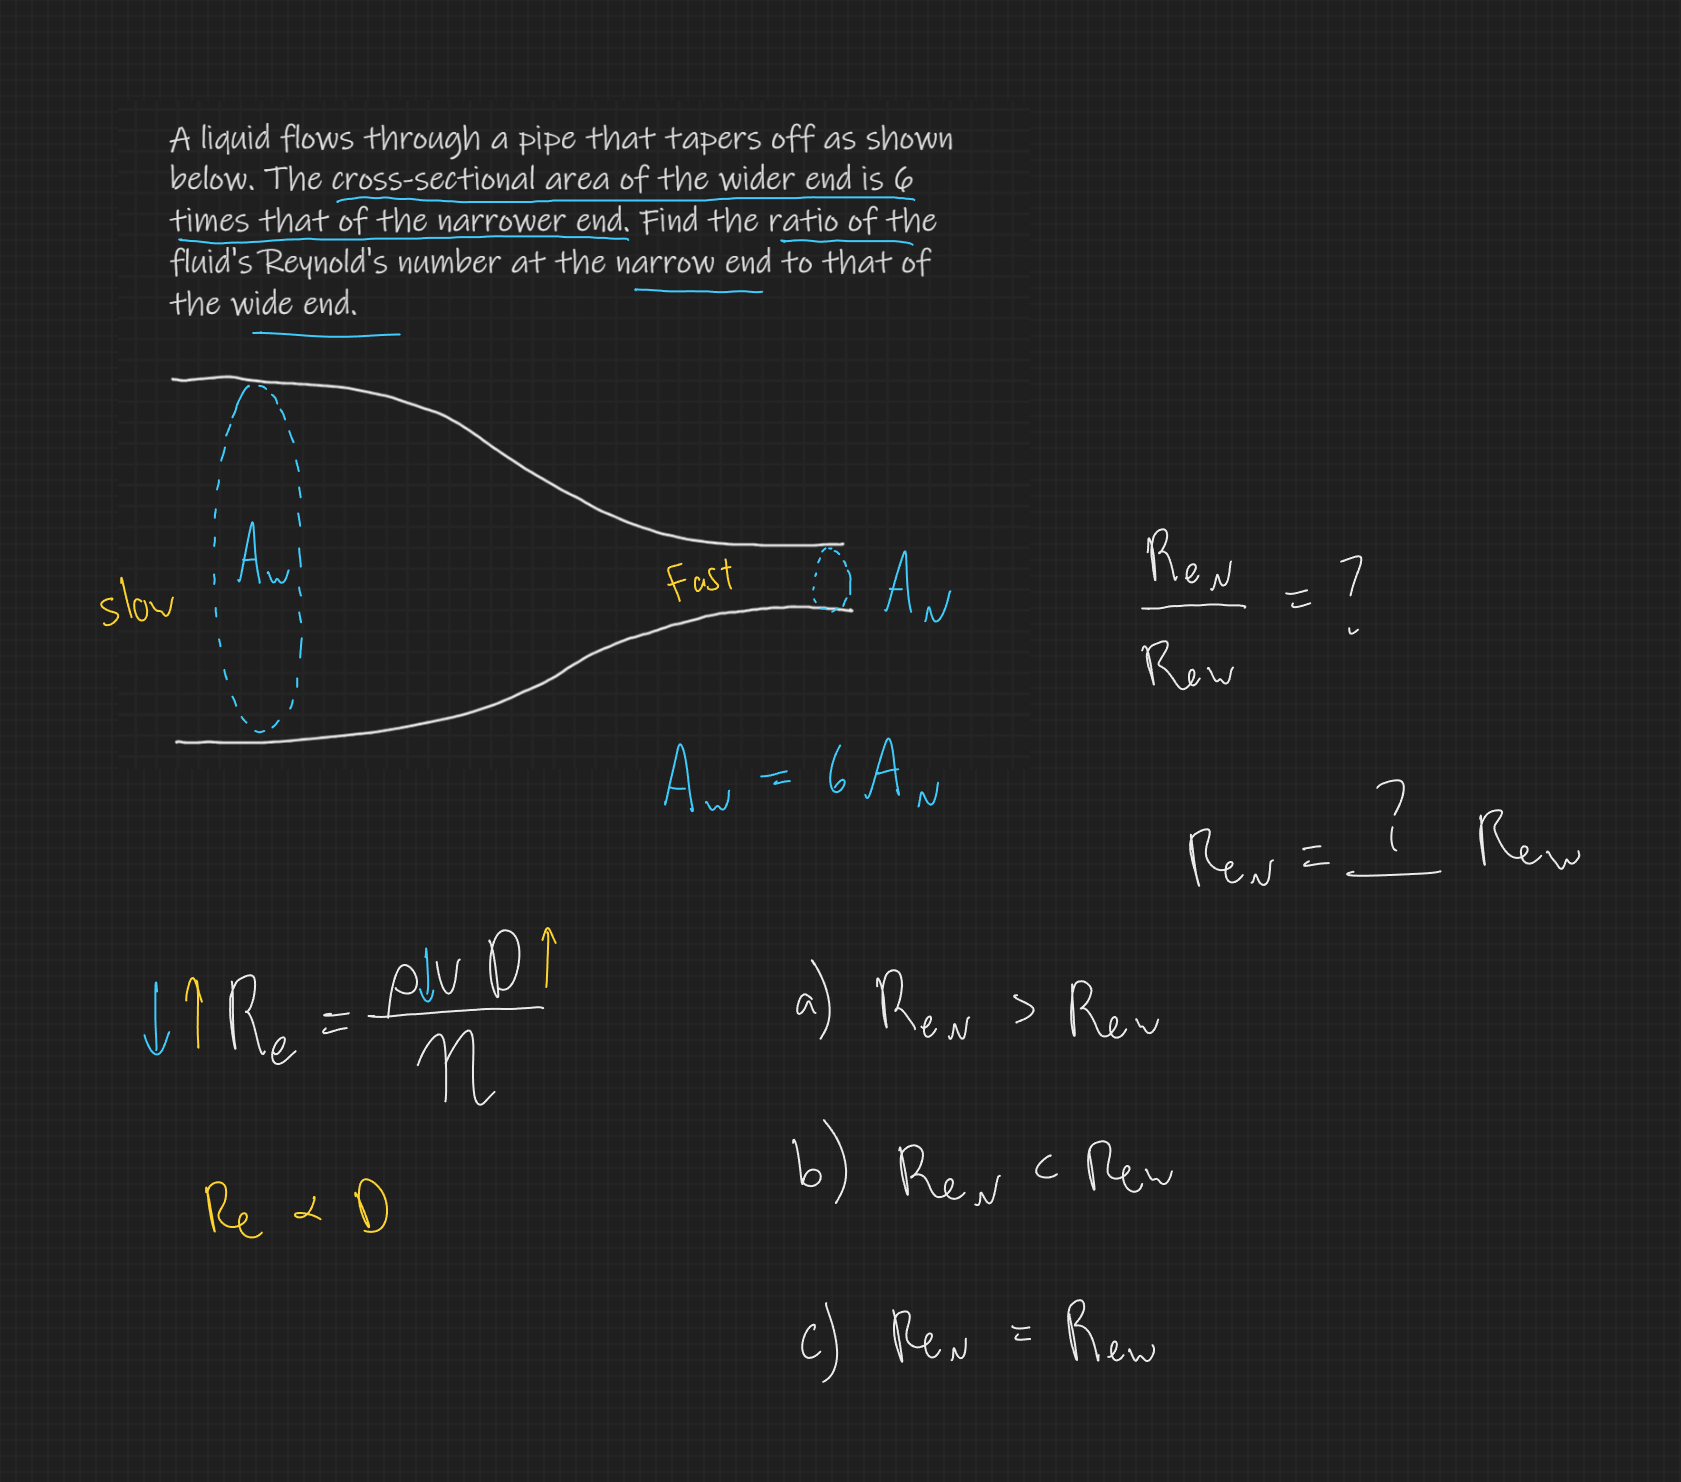 A liquid flows through a pipe that tapers off as shown
below. The cross-sectional area of the wider end is 6
times that of the narrower end. Find the ratio of the
fluid's Reynold's number at the narrow end to that of
the wide end.
slow
A_w
Fast
A_N
Re_N / Re_w = ?
A_w = 6 A_N
Re_N = ? Re_w
↓↑ R_e = ρ↓v D↑ / η
a) Re_N > Re_w
Re ∝ D
b) Re_N < Re_w
c) Re_N = Re_w